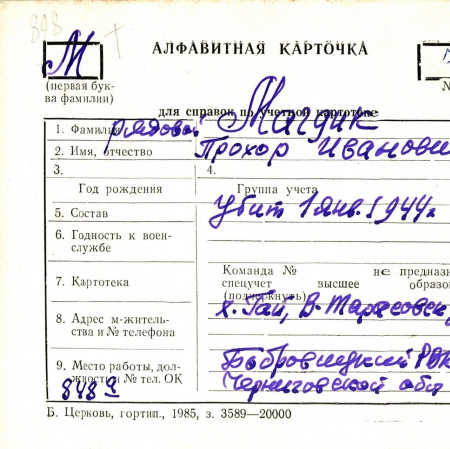 848
М
АЛФАВИТНАЯ КАРТОЧКА
(первая бук-
ва фамилии)
№
для справок по учетной картотеке
1. Фамилия рядовой Магдик
2. Имя, отчество Прохор Иванови
3.
4.
Год рождения
Группа учета
5. Состав
Убит 1 янв. 1944г.
6. Годность к воен-
службе
Команда № не предназн
7. Картотека
спецучет высшее образо
(подчеркнуть)
8. Адрес м-житель-
ства и № телефона
х. Гай, В-Тарасовск
9. Место работы, дол-
жность и № тел. ОК
Бобровицкий РВК
Черниговской обл
8489
Б. Церковь, гортип., 1985, з. 3589—20000